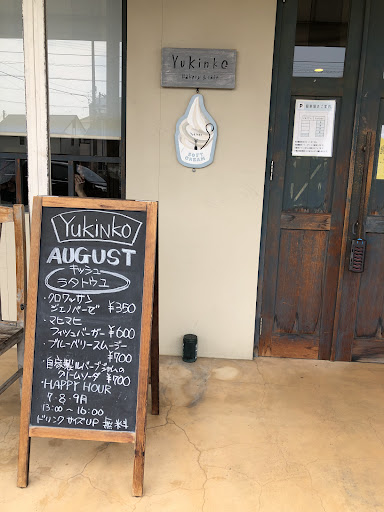 Yukinko
Bakery & Cafe
SOFT
CREAM
Yukinko
AUGUST
キッシュ
ラタトゥユ
・クロワッサン
ジェノベーゼ ¥350
・マヒマヒ
フィッシュバーガー ¥600
・ブルーベリースムージー
¥700
・自家製ルバーブジャムの
クリームソーダ ¥700
・HAPPY HOUR
7・8・9月
13:00〜16:00
ドリンクサイズUP 無料